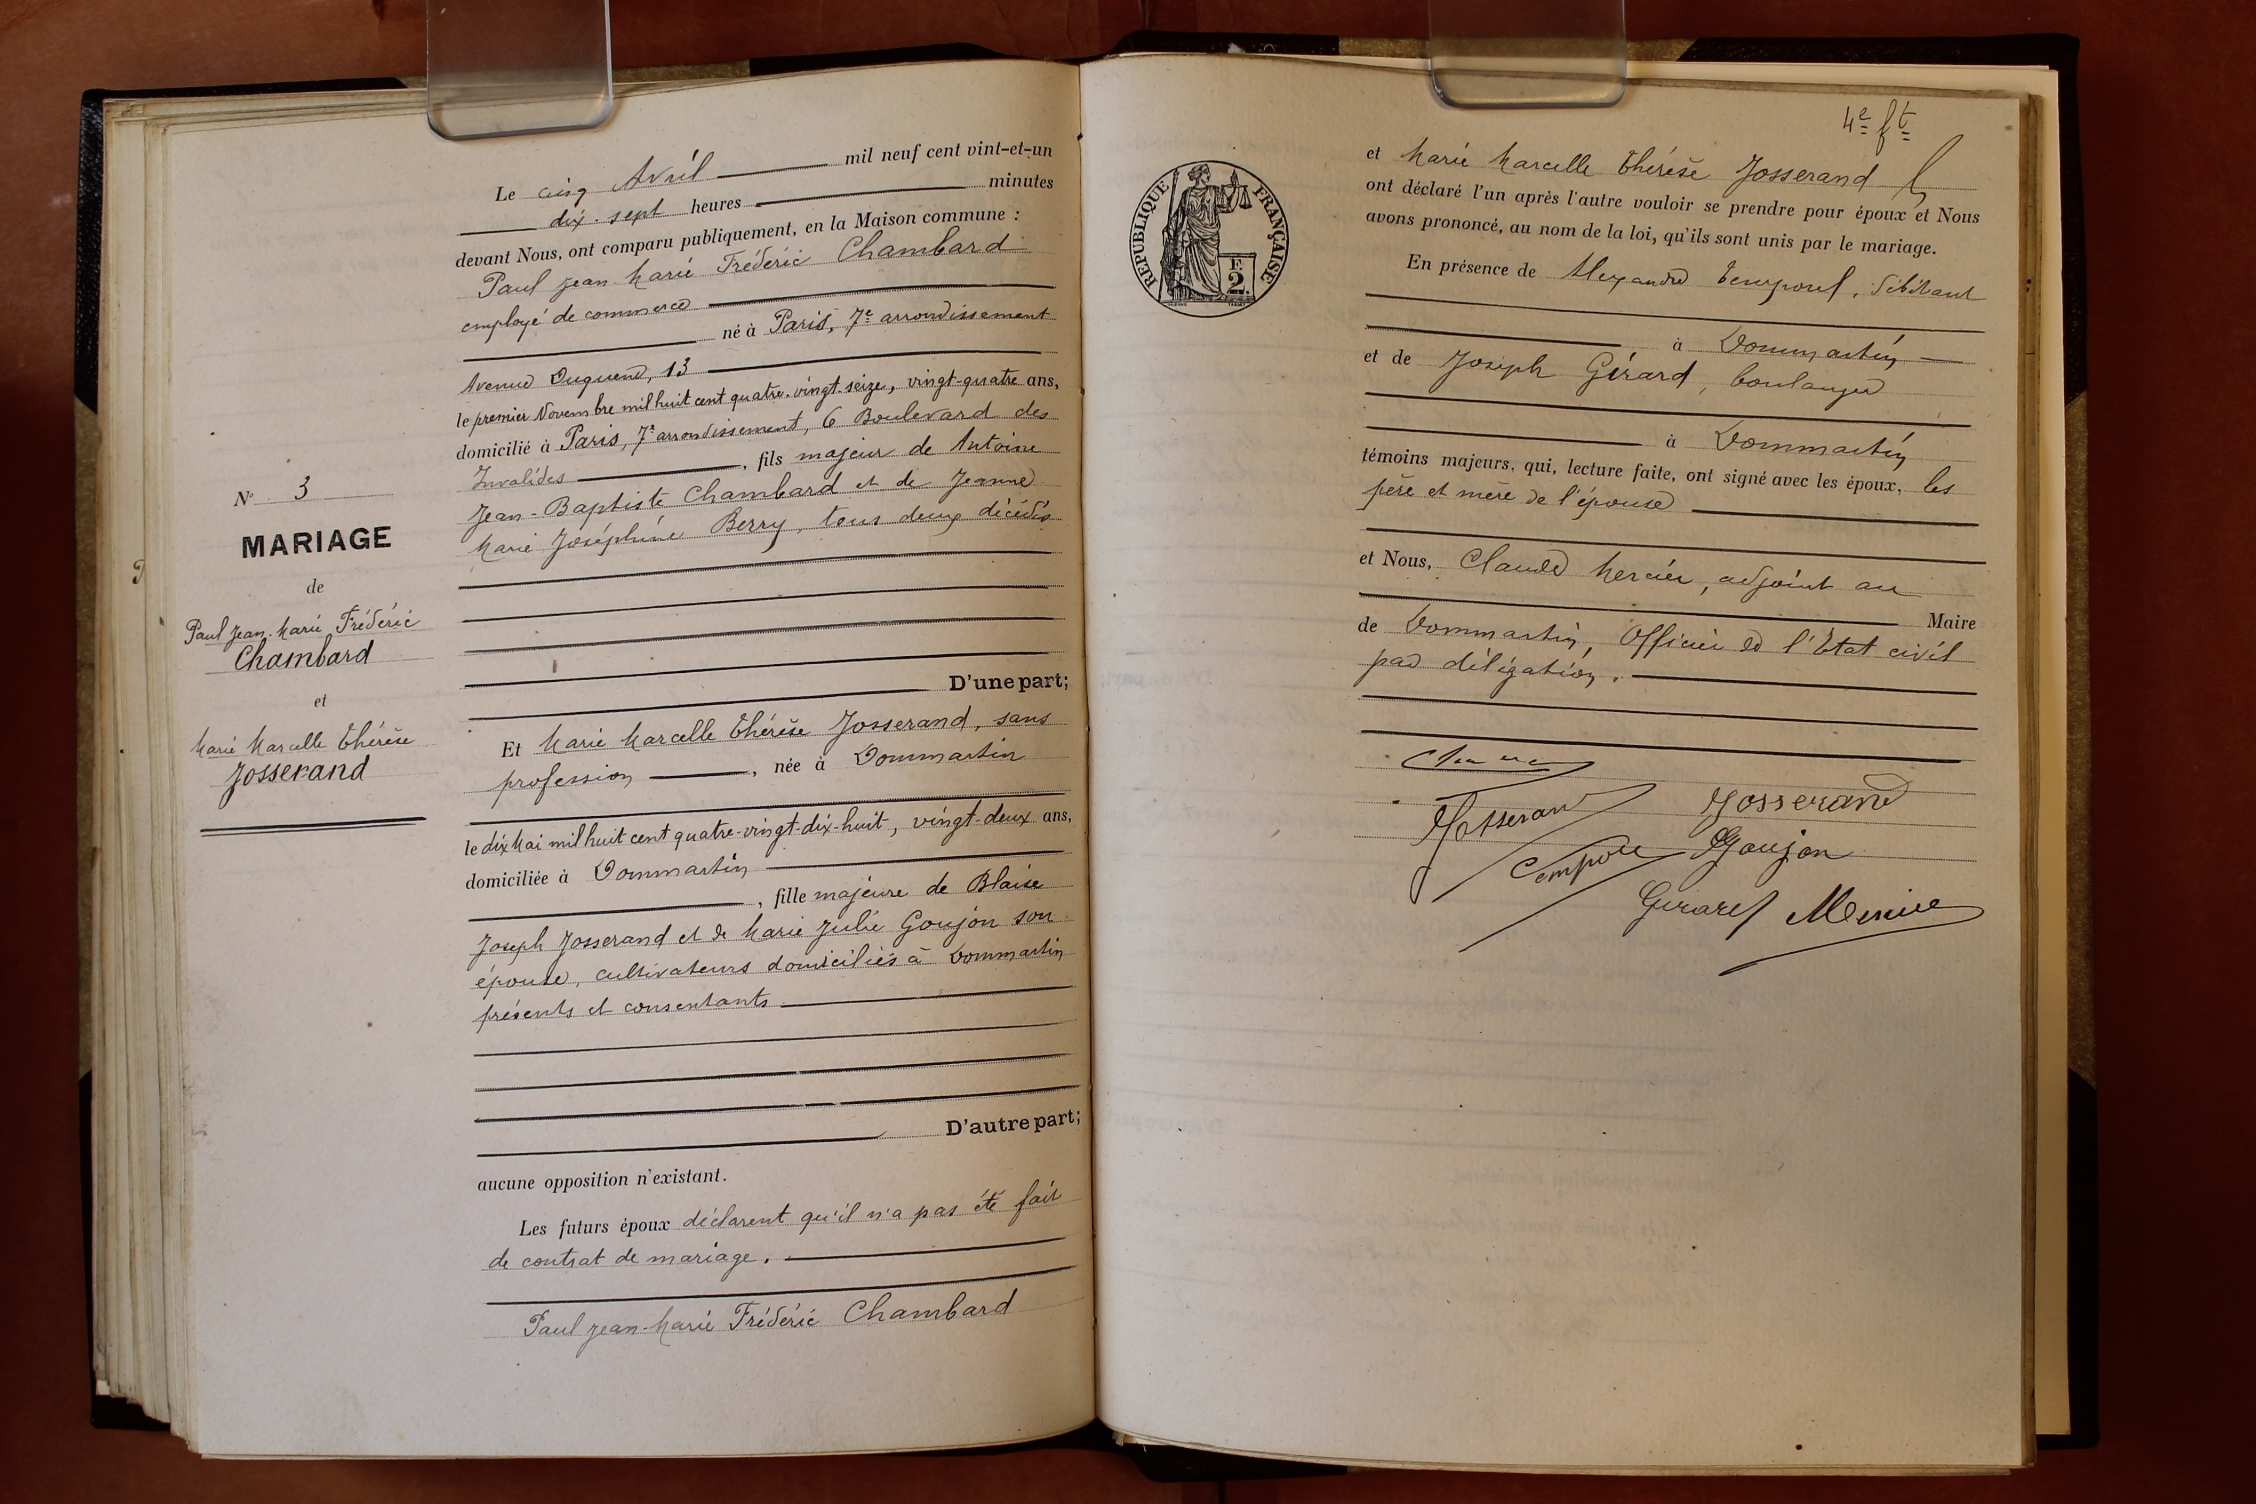 N° 3
MARIAGE
de
Paul Jean-Marie Frédéric
Chambard
et
Marie Marcelle Thérèse
Josserand
Le cinq Avril mil neuf cent vint-et-un
dix-sept heures minutes
devant Nous, ont comparu publiquement, en la Maison commune :
Paul Jean-Marie Frédéric Chambard
employé de commerce
né à Paris, 7e arrondissement
Avenue Duquesne, 13
le premier Novembre mil huit cent quatre-vingt-seize, vingt-quatre ans,
domicilié à Paris, 7e arrondissement, 6 Boulevard des
Invalides , fils majeur de Antoine
Jean-Baptiste Chambard et de Jeanne
Marie Joséphine Berry, tous deux décédés
D'une part;
Et Marie Marcelle Thérèse Josserand, sans
profession , née à Dommartin
le dix Mai mil huit cent quatre-vingt-dix-huit, vingt-deux ans,
domiciliée à Dommartin
, fille majeure de Blaise
Joseph Josserand et de Marie Julie Goujon son
épouse, cultivateurs domiciliés à Dommartin
présents et consentants
D'autre part;
aucune opposition n'existant.
Les futurs époux déclarent qu'il n'a pas été fait
de contrat de mariage.
Paul Jean-Marie Frédéric Chambard
4e ft
RÉPUBLIQUE FRANÇAISE
F.
2.
et Marie Marcelle Thérèse Josserand
ont déclaré l'un après l'autre vouloir se prendre pour époux et Nous
avons prononcé, au nom de la loi, qu'ils sont unis par le mariage.
En présence de Alexandre Temporel, débitant
à Dommartin
et de Joseph Gérard, boulanger
à Dommartin
témoins majeurs, qui, lecture faite, ont signé avec les époux, les
père et mère de l'épouse
et Nous, Claude Mercier, adjoint au
Maire
de Dommartin, Officier de l'État civil
par délégation.
Josserand Josserand
Goujon
Gerard Mercier